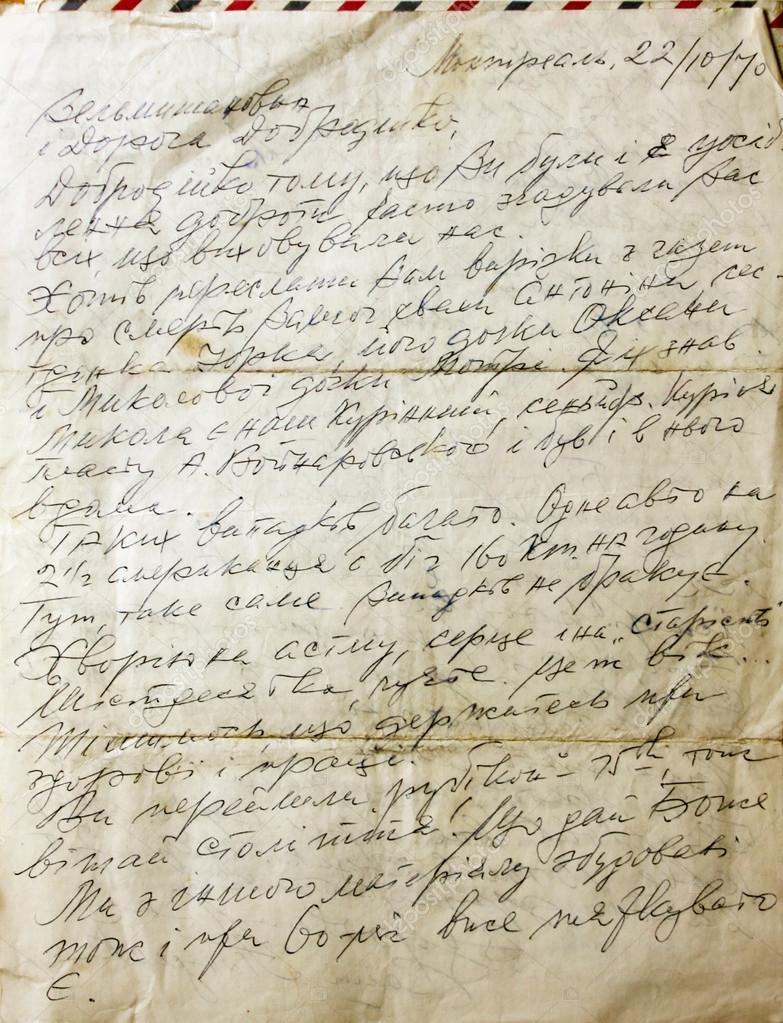 Монтреаль, 22/10/70
Вельмишановна
і Дорога Добродійко,
Добродійко тому, що Ви були і є
доброти часто згадували Вас
всіх, що виховували нас.
Хотів переслати Вам вирізки з газет
про смерть Антоніни,
Юрка, його дочки Оксани
і Миколової дочки Мотрі. Я їх знав.
Микола є наш Курінний,
Пласту А. Войнаровського і був і в нього
вдома.
Таких випадків багато. Одне авто на
2½ американця є біг 160 км. на годину.
Тут, таке саме. Випадків не бракує.
Хворію на астму, серце і на „старість“
Шістдесятка, це ж вік...
Тішимось, що держитесь при
здоровлі і праці.
Ви перейшли „рубікон“ 75ки, тож
вітай століття! Що дай Боже
Ми з іншого матеріялу збудовані
тож і при 60-рік вже
є.